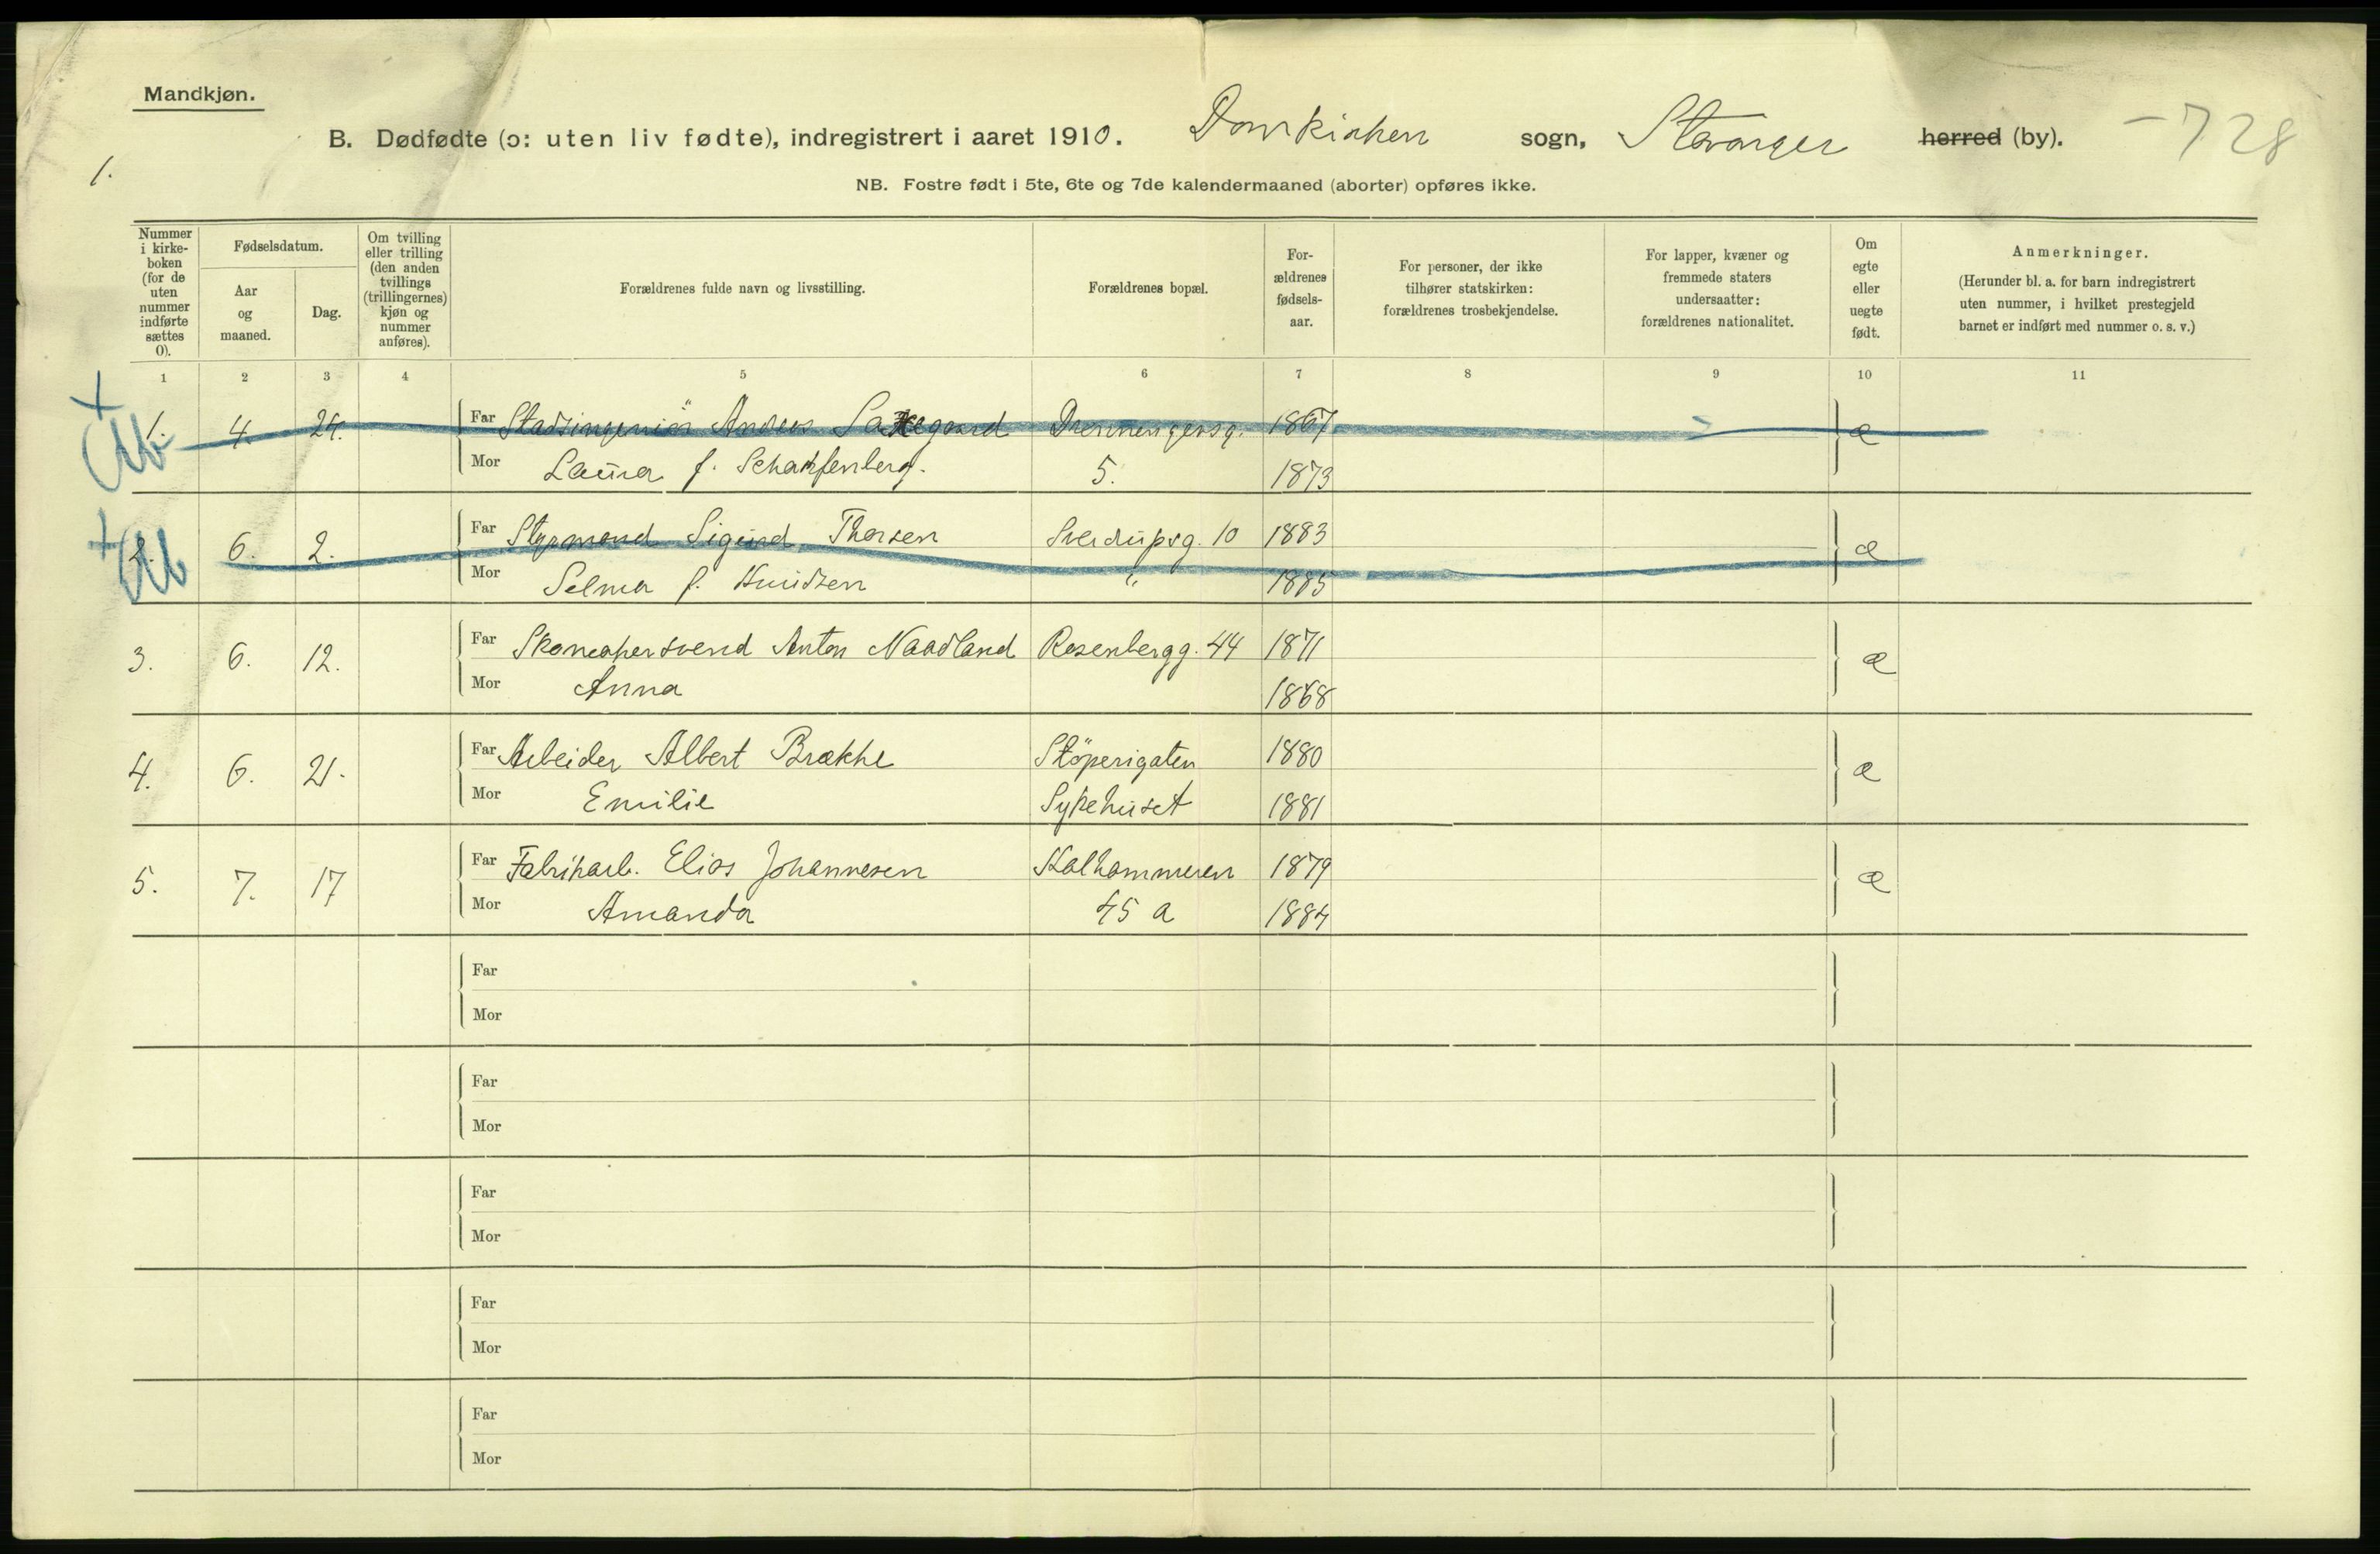 Mandkjøn.
B. Dødfødte (ɔ: uten liv fødte), indregistrert i aaret 1910. Domkirken sogn, Stavanger herred (by). –728
1.
NB. Fostre født i 5te, 6te og 7de kalendermaaned (aborter) opføres ikke.
Nummer i kirke-boken (for de uten nummer indførte sættes 0).
Fødselsdatum.
Aar og maaned.
Dag.
Om tvilling eller trilling (den anden tvillings (trillingernes) kjøn og nummer anføres).
Forældrenes fulde navn og livsstilling.
Forældrenes bopæl.
For-ældrenes fødsels-aar.
For personer, der ikke tilhører statskirken: forældrenes trosbekjendelse.
For lapper, kvæner og fremmede staters undersaatter: forældrenes nationalitet.
Om egte eller uegte født.
Anmerkninger.
(Herunder bl. a. for barn indregistrert uten nummer, i hvilket prestegjeld barnet er indført med nummer o. s. v.)
1 2 3 4 5 6 7 8 9 10 11
+
Ab
1. 4. 24. Far Stadsingeniör Andreas Saxegaard 1867 æ
Mor Laura f. Scharffenberg. 5. 1873
+
Ab
2. 6. 2. Far Styrmand Sigurd Thorsen Sverdrupsg. 10 1883 æ
Mor Selma f. Knudsen " 1885
3. 6. 12. Far Skomakersvend Anton Naadland Rosenbergg. 44 1871 æ
Mor Anna 1868
4. 6. 21. Far Arbeider Albert Brække Støperigaten 1880 æ
Mor Emilie Sykehuset 1881
5. 7. 17 Far Fabrikarb. Elias Johannesen Kalhammeren 1879 æ
Mor Amanda 45 a 1884
Far
Mor
Far
Mor
Far
Mor
Far
Mor
Far
Mor